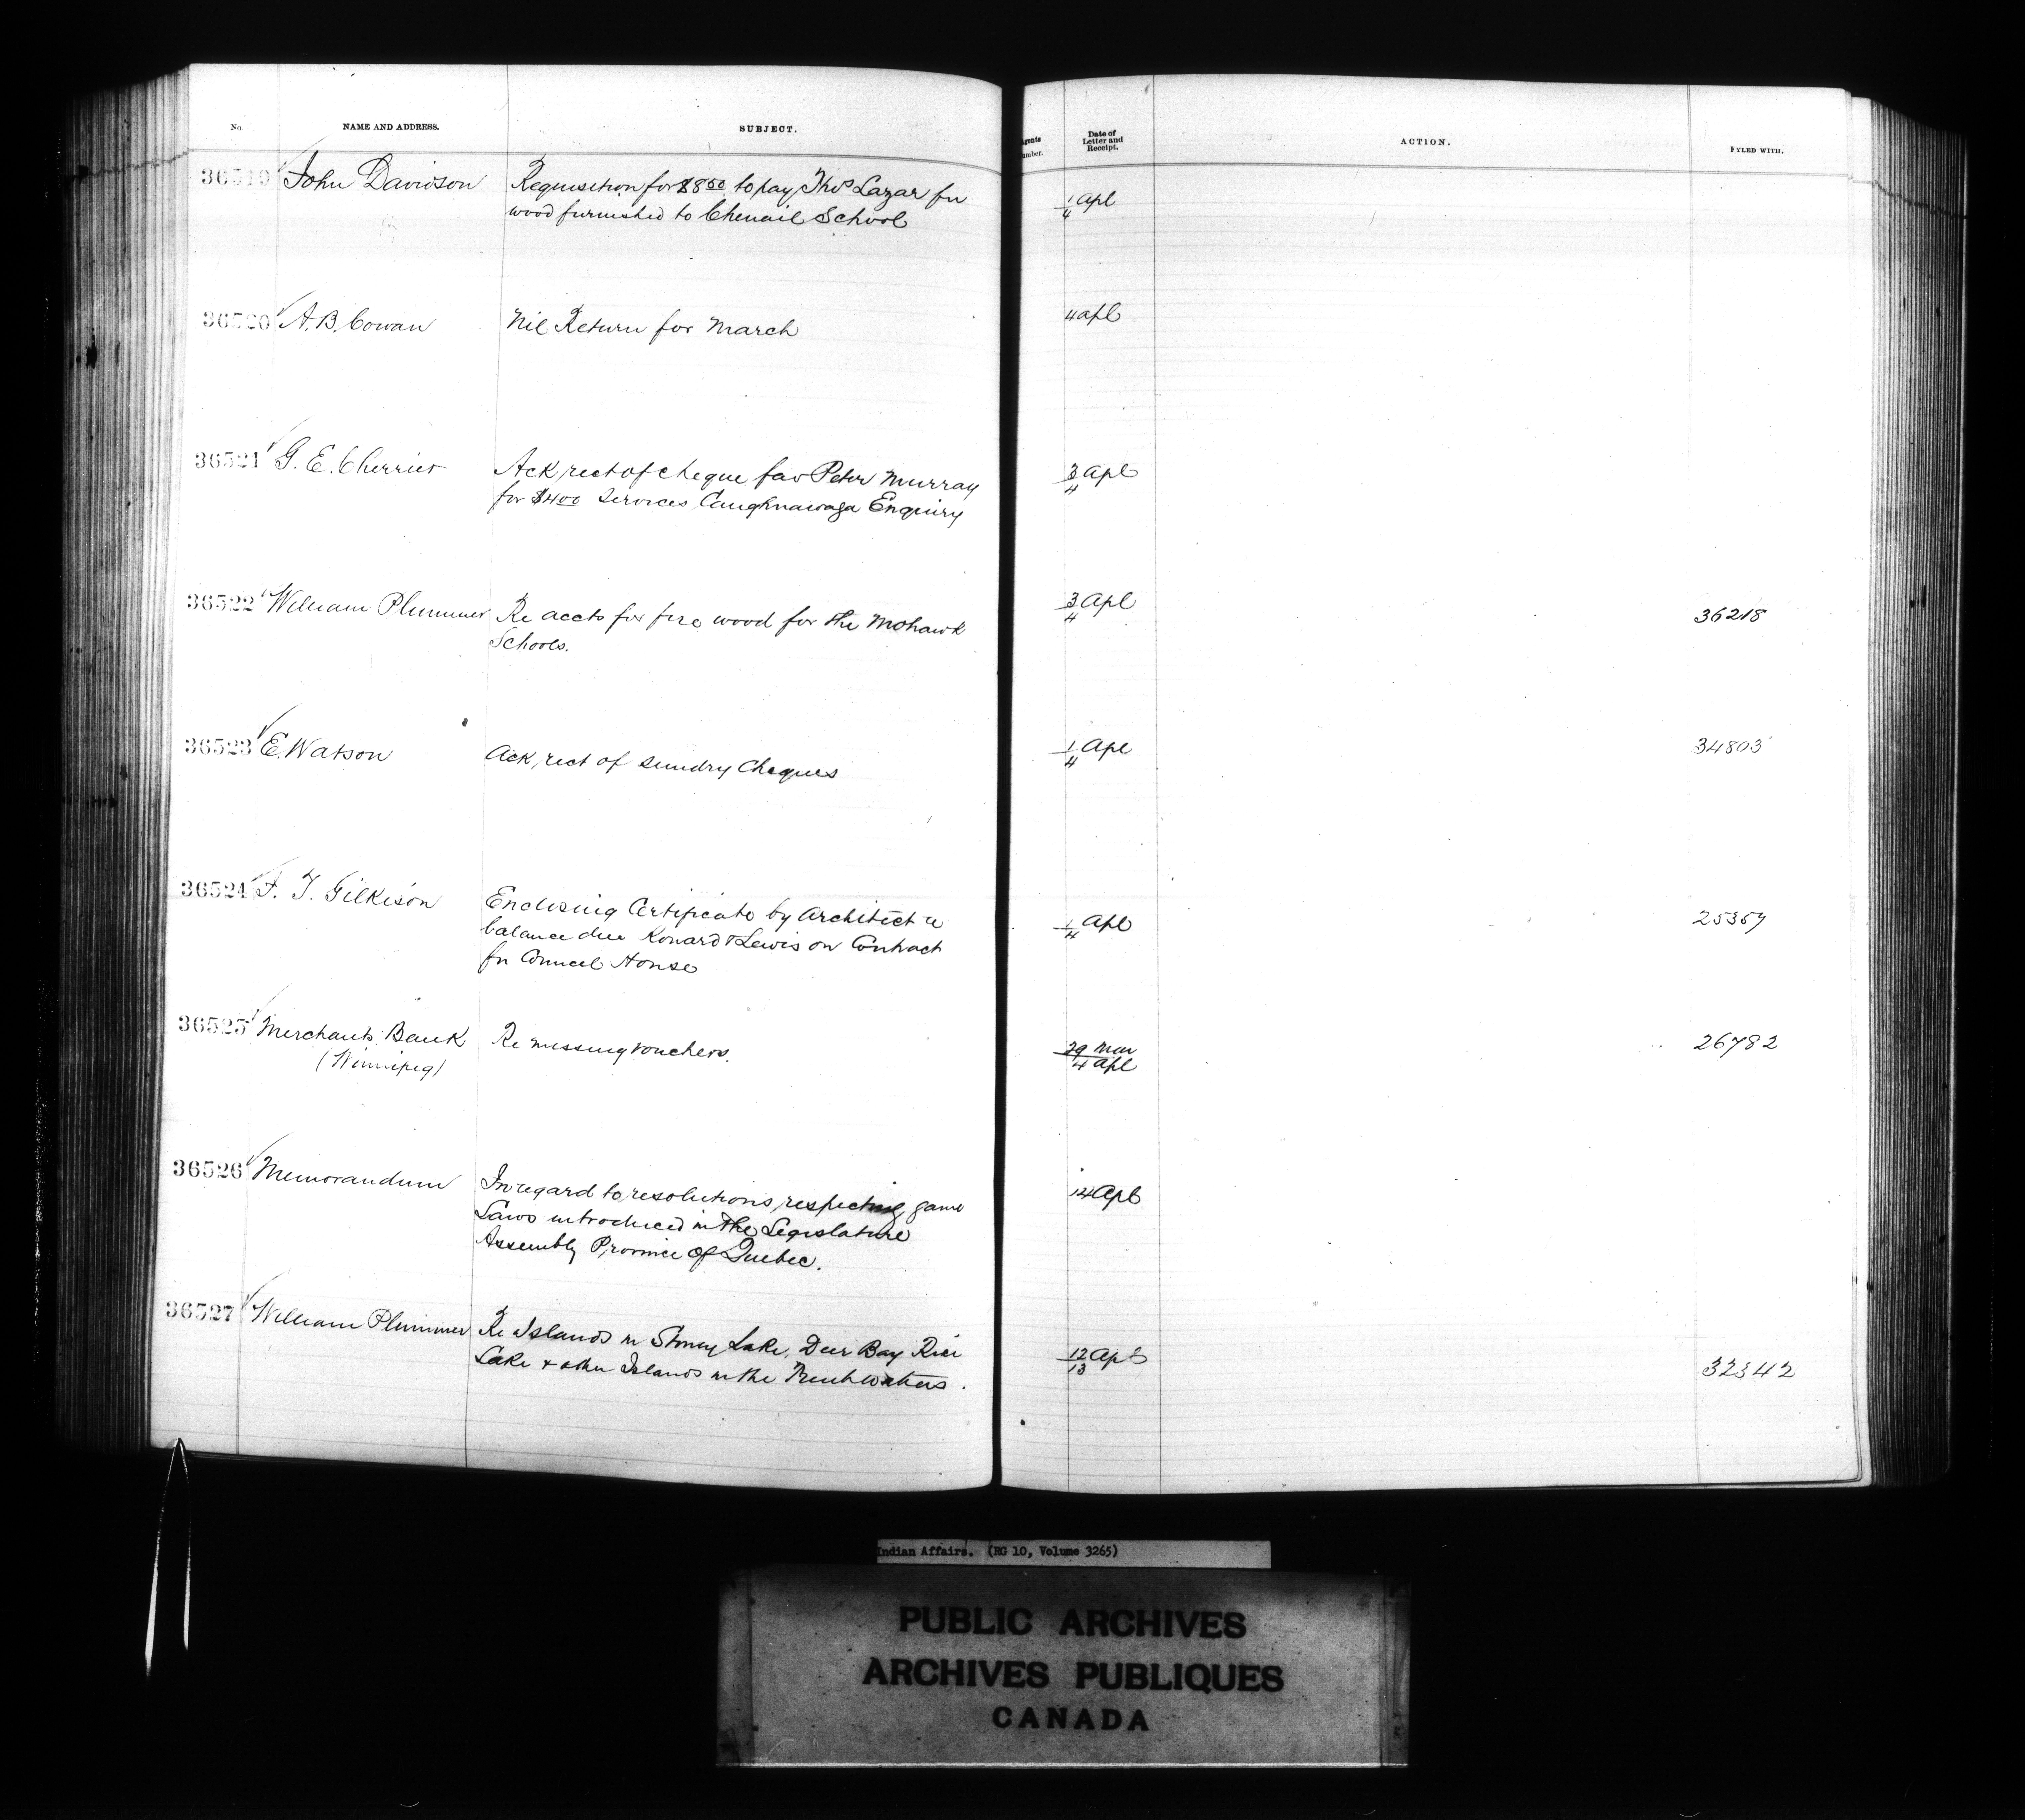 No.
NAME AND ADDRESS.
SUBJECT.
gents
umber.
Date of
Letter and
Receipt.
ACTION.
FYLED WITH.
36519 John Davidson
Requisition for $8.50 to pay Thos Lazar for
wood furnished to Chenail School
1/4 Apl
36520 A. B. Cowan
Nil Return for March
4 Apl
36521 G. E. Cherrier
Ack, rect of cheque fav Peter Murray
for $4.00 Services Caughnawaga Enquiry
3/4 Apl
36522 William Plummer
Re accts for fire wood for the Mohawk
Schools.
3/4 Apl
36218
36523 E. Watson
Ack, rect of sundry Cheques
1/4 Apl
34803
36524 J. T. Gilkison
Enclosing Certificate by Architect re
balance due Konard & Lewis on Contract
for Council House
1/4 Apl
25359
36525 Merchants Bank
(Winnipeg)
Re missing vouchers.
29 Mar
4 Apl
26782
36526 Memorandum
In regard to resolutions respecting game
Laws introduced in the Legislature
Assembly Province of Quebec.
14 Apl
36527 William Plummer
Re Islands in Stoney Lake, Deer Bay Rice
Lake & other Islands in the Trent Waters.
12/13 Apl
32342
Indian Affairs. (RG 10, Volume 3265)
PUBLIC ARCHIVES
ARCHIVES PUBLIQUES
CANADA